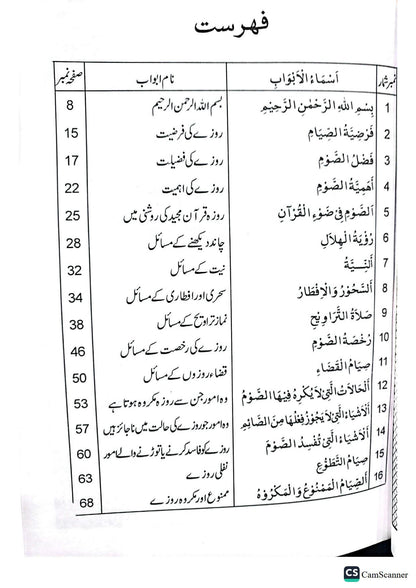 فہرست
نمبر شمار	اَسْمَاءُ الْاَبْوَابِ	نام ابواب	صفحہ نمبر
1	بِسْمِ اللهِ الرَّحْمٰنِ الرَّحِيْمِ	بسم اللہ الرحمن الرحیم	8
2	فَرْضِيَّةُ الصِّيَامِ	روزے کی فرضیت	15
3	فَضْلُ الصَّوْمِ	روزے کی فضیلت	17
4	اَهَمِّيَّةُ الصَّوْمِ	روزے کی اہمیت	22
5	اَلصَّوْمُ فِيْ ضَوْءِ الْقُرْآنِ	روزہ قرآن مجید کی روشنی میں	25
6	رُؤْيَةُ الْهِلَالِ	چاند دیکھنے کے مسائل	28
7	اَلنِّيَّةُ	نیت کے مسائل	32
8	اَلسَّحُوْرُ وَالْاِفْطَارُ	سحری اور افطاری کے مسائل	34
9	صَلَاةُ التَّرَاوِيْحِ	نماز تراویح کے مسائل	38
10	رُخْصَةُ الصَّوْمِ	روزے کی رخصت کے مسائل	46
11	صِيَامُ الْقَضَاءِ	قضاء روزوں کے مسائل	50
12	اَلْحَالَاتُ الَّتِيْ لَا يُكْرَهُ فِيْهَا الصَّوْمُ	وہ امور جن سے روزہ مکروہ ہوتا ہے	53
13	اَلْاَشْيَاءُ الَّتِيْ لَا يَجُوْزُ فِعْلُهَا مِنَ الصَّائِمِ	وہ امور جو روزے کی حالت میں ناجائز ہیں	57
14	اَلْاَشْيَاءُ الَّتِيْ تُفْسِدُ الصَّوْمَ	روزے کو فاسد کرنے یا توڑنے والے امور	60
15	صِيَامُ التَّطَوُّعِ	نفلی روزے	63
16	اَلصِّيَامُ الْمَمْنُوْعُ وَالْمَكْرُوْهُ	ممنوع اور مکروہ روزے	68
CS CamScanner